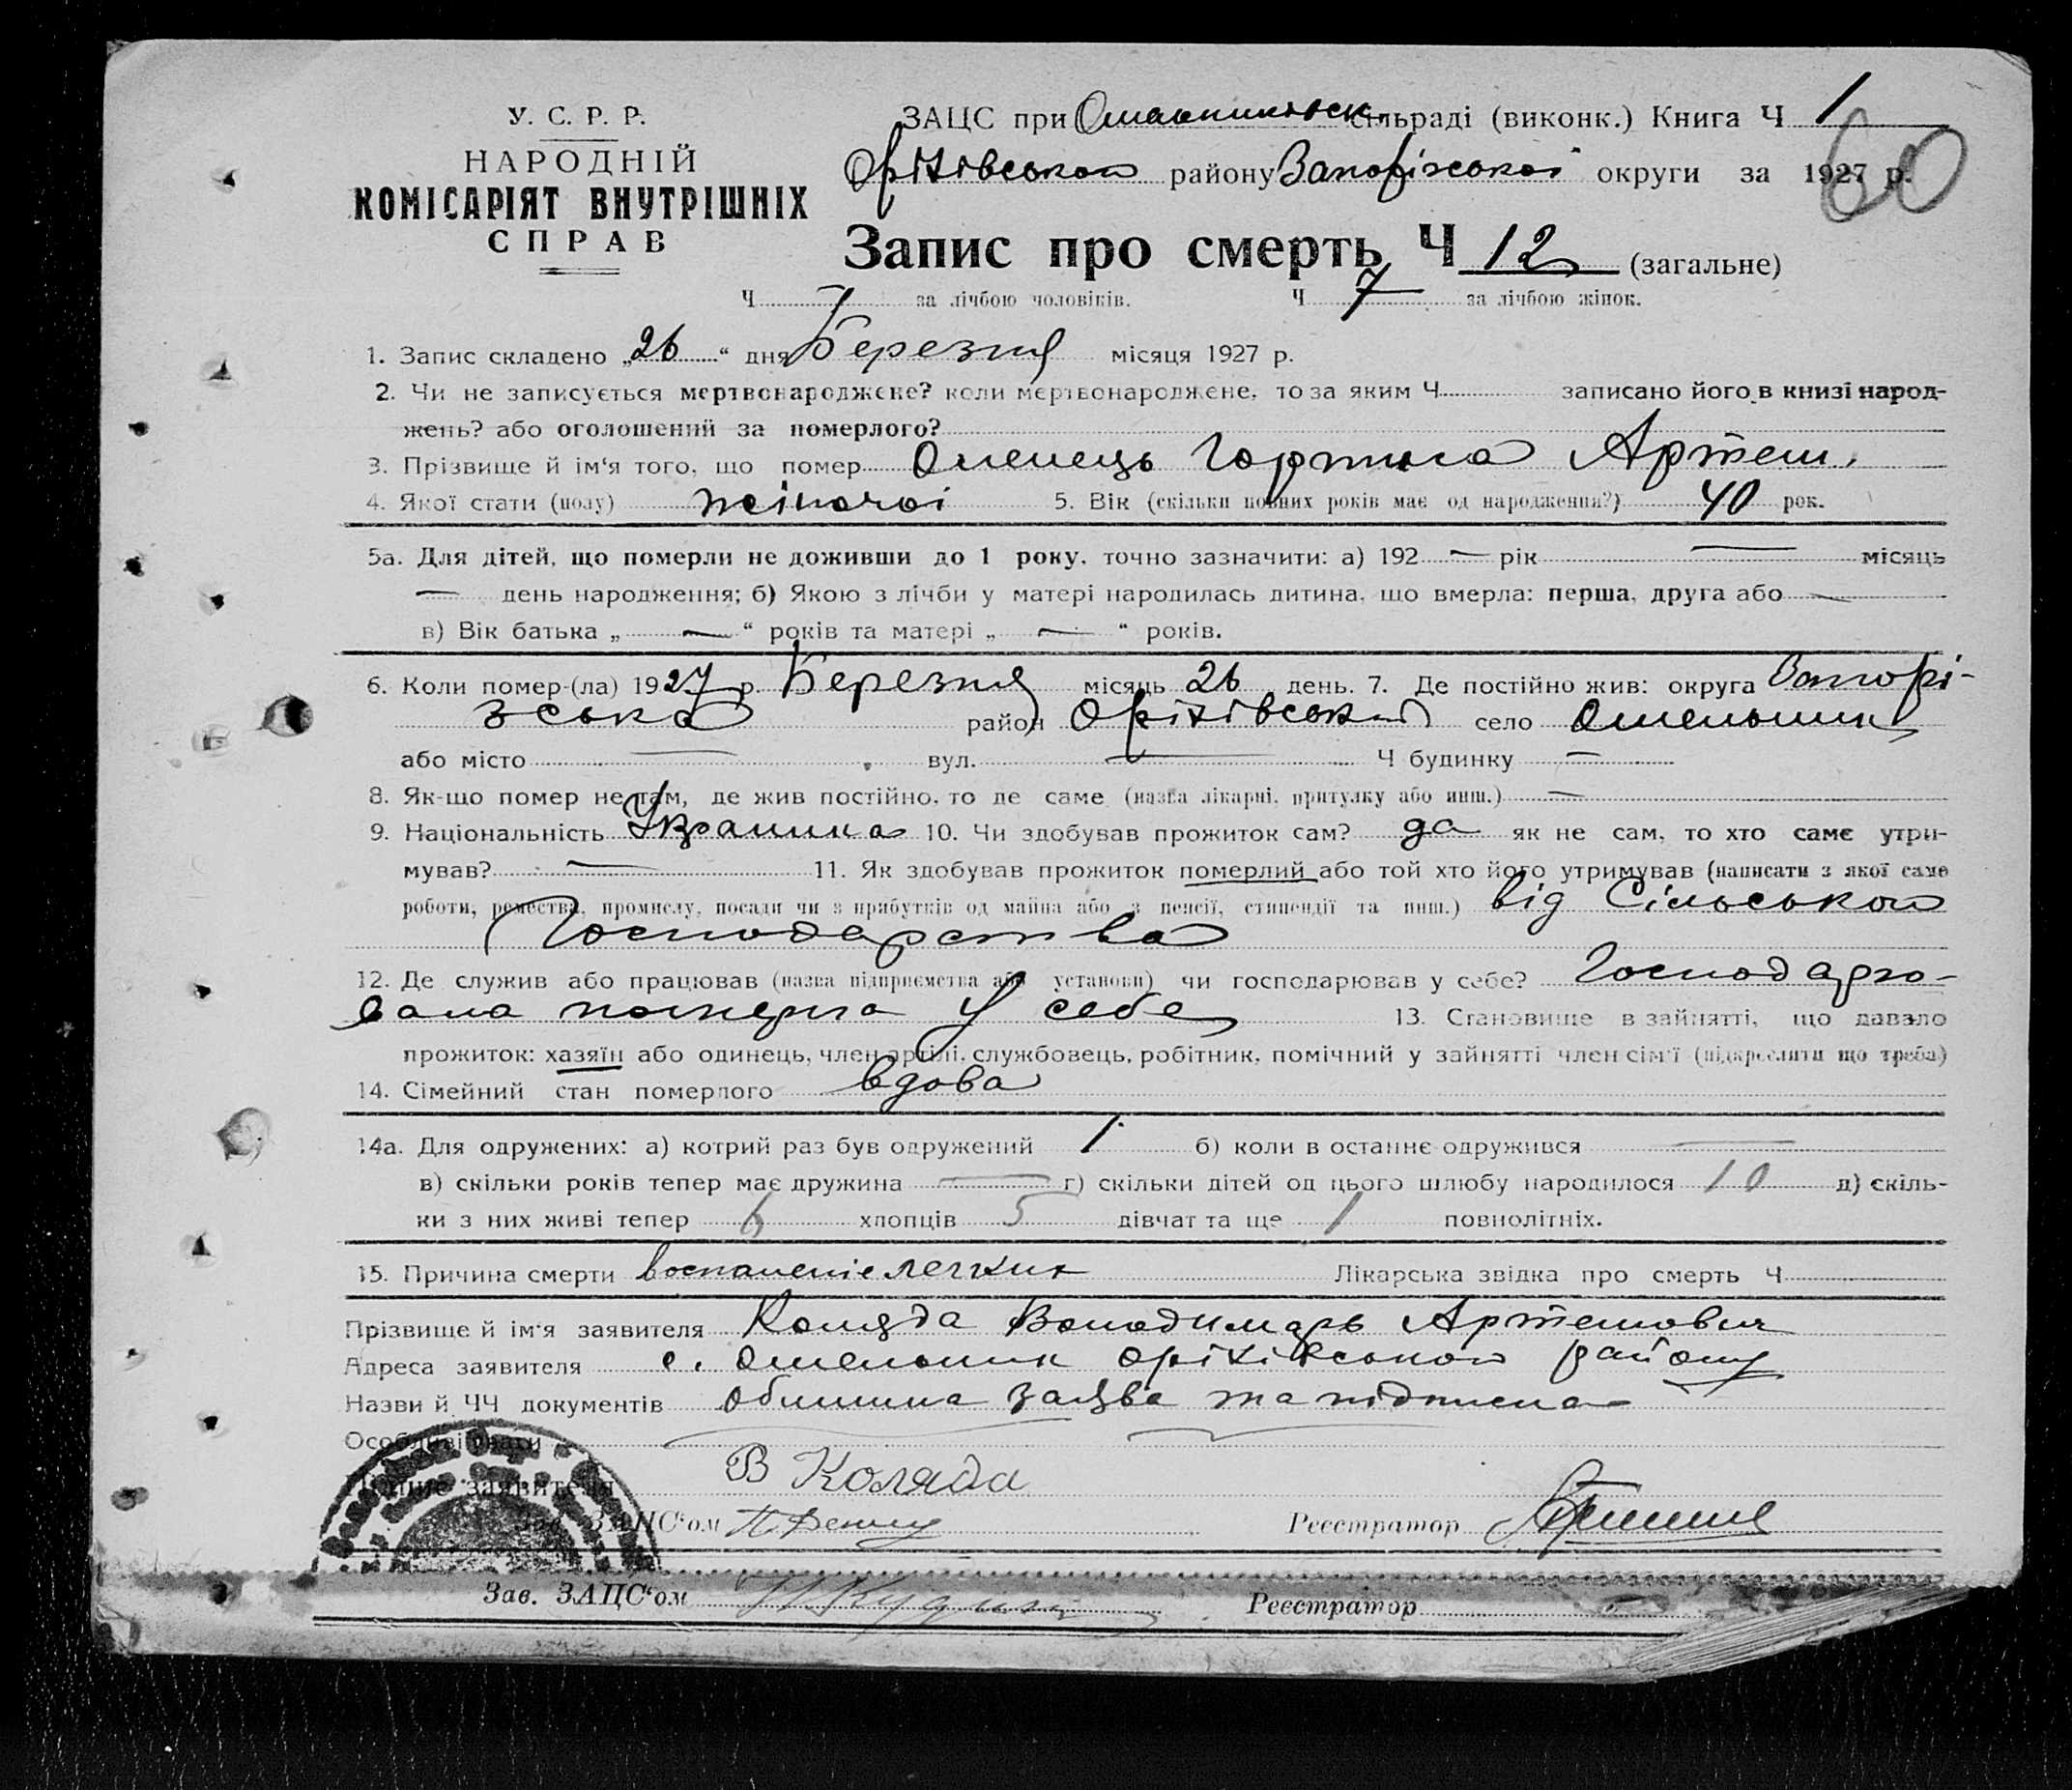 У. С. Р. Р.
НАРОДНІЙ
КОМІСАРІЯТ ВНУТРІШНІХ
СПРАВ
ЗАЦС при сільраді (виконк.) Книга Ч 1
Оріхівського району Запоріжської округи за 1927 р.
60
Запис про смерть Ч 12 (загальне)
Ч — за лічбою чоловіків. Ч 7 за лічбою жінок.
1. Запис складено „26“ дня Березня місяця 1927 р.
2. Чи не записується мертвонароджене? коли мертвонароджене, то за яким Ч записано його в книзі народ-
жень? або оголошений за померлого?
3. Прізвище й ім'я того, що помер Омелець Горпина Артем.
4. Якої стати (полу) жіночоі 5. Вік (скільки повних років має од народження?) 40 рок.
5а. Для дітей, що померли не доживши до 1 року, точно зазначити: а) 192 — рік — місяць
— день народження; б) Якою з лічби у матері народилась дитина, що вмерла: перша, друга або —
в) Вік батька „ — “ років та матері „ — “ років.
6. Коли помер-(ла) 1927 р. Березня місяць 26 день. 7. Де постійно жив: округа Запорі-
зська район Оріхівський село Омельник
або місто — вул. — Ч будинку —
8. Як-що помер не там, де жив постійно, то де саме (назва лікарні, притулку або инш.) —
9. Національність Украинка 10. Чи здобував прожиток сам? да як не сам, то хто саме утри-
мував? — 11. Як здобував прожиток померлий або той хто його утримував (написати з якої саме
роботи, ремества, промислу, посади чи з прибутків од майна або з пенсії, стипендії та инш.) від Сільського
Господарства
12. Де служив або працював (назва підприємства або установи) чи господарював у себе? Господарю-
вала померла у себе 13. Становище в зайнятті, що давало
прожиток: хазяїн або одинець, член артілі, службовець, робітник, помічний у зайнятті член сім'ї (підкреслити що треба)
14. Сімейний стан померлого вдова
14а. Для одружених: а) котрий раз був одружений 1 б) коли в останнє одружився —
в) скільки років тепер має дружина — г) скільки дітей од цього шлюбу народилося 10 д) скіль-
ки з них живі тепер 6 хлопців 5 дівчат та ще 1 повнолітніх.
15. Причина смерти воспаленіе легких Лікарська звідка про смерть Ч
Прізвище й ім'я заявителя Коляда Володимарь Артемович
Адреса заявителя с. Омельник Оріхівського району
Назви й ЧЧ документів заява та підписка
Особливі знаки
Підпис заявителя В Коляда
Зав. ЗАЦС'ом Реєстратор
Зав. ЗАЦС'ом Реєстратор